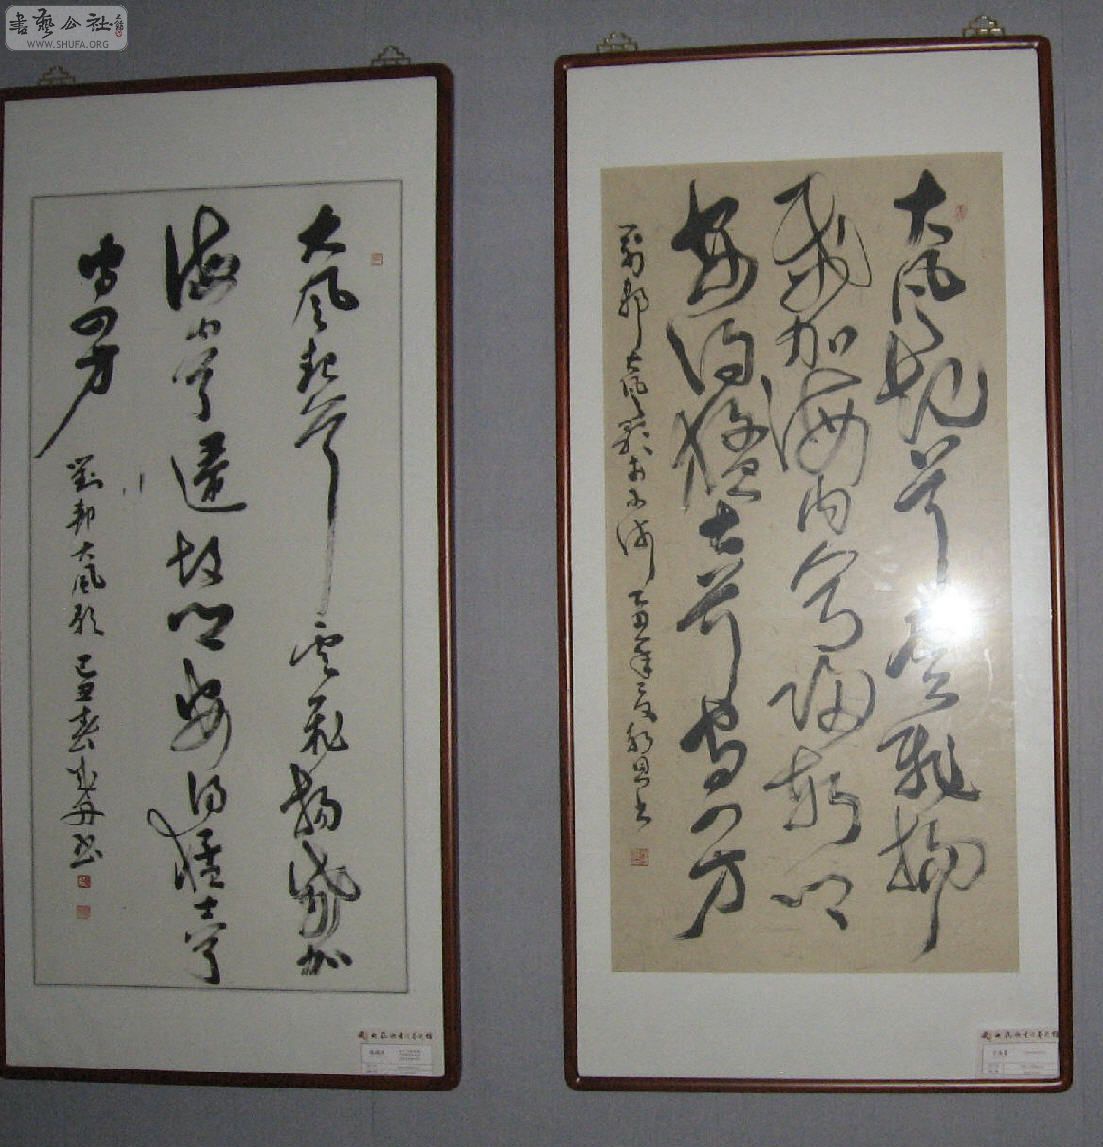 書藝公社
WWW.SHUFA.ORG
大風起兮雲飛揚
威加海内兮歸故鄉
安得猛士兮守四方
劉邦大風歌
大風起兮雲飛揚威加
海内兮還故鄉安得猛士兮
守四方
劉邦大風歌 己丑春